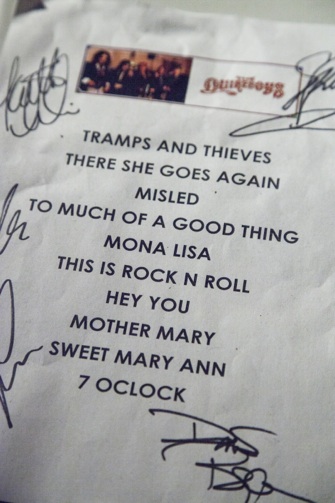 THE
QUIREBOYS
TRAMPS AND THIEVES
THERE SHE GOES AGAIN
MISLED
TO MUCH OF A GOOD THING
MONA LISA
THIS IS ROCK N ROLL
HEY YOU
MOTHER MARY
SWEET MARY ANN
7 OCLOCK